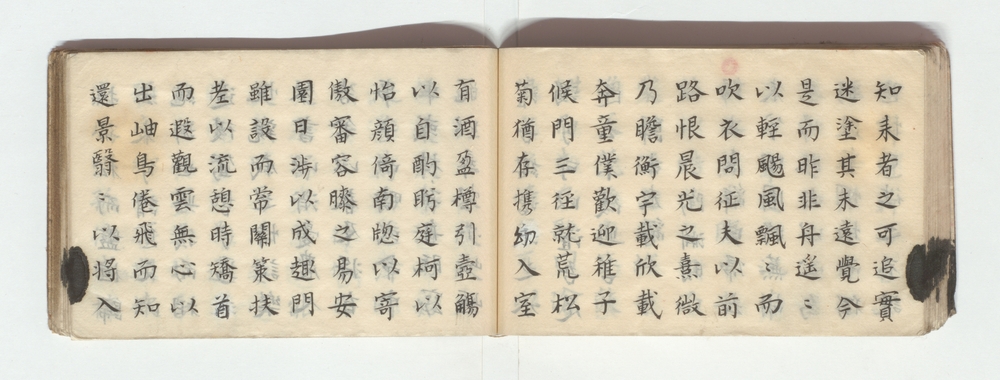 知来者之可追實
迷塗其未遠覺今
是而昨非舟遥〻
以輕颺風飄〻而
吹衣問征夫以前
路恨晨光之熹微
乃瞻衡宇載欣載
奔童僕歡迎稚子
候門三徑就荒松
菊猶存携幼入室
有酒盈樽引壺觴
以自酌眄庭柯以
怡顔倚南牕以寄
傲審容膝之易安
園日渉以成趣門
雖設而常關策扶
老以流憩時矯首
而遐觀雲無心以
出岫鳥倦飛而知
還景翳〻以将入